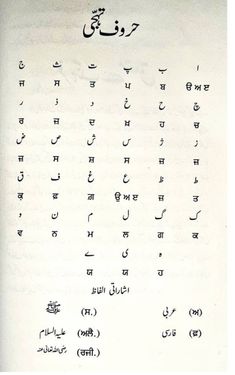 حروف تہجّی
ا ب پ ت ث ج
ਜ ਸ ਤ ਪ ਬ ੳ ਅ ੲ
چ ح خ د ذ ر
ਰ ਜ਼ ਦ ਖ਼ ਹ ਚ
ز ژ س ش ص ض
ਜ਼ ਸ ਸ਼ ਸ ਜ਼ ਜ਼
ط ظ ع غ ف ق
ਕ਼ ਫ਼ ਗ਼ ੳ ਅ ੲ ਜ਼ ਤ
ک گ ل م ن و
ਵ ਨ ਮ ਲ ਗ ਕ
ہ ی ے
ਯ ਯ ਹ
اشاراتی الفاظ
(ਅ) عربی (ਸ.) ﷺ
(ਫ਼) فارسی (ਅਲੈ.) علیہ السلام
(ਰਜੀ.) رضی اللہ تعالیٰ عنہ